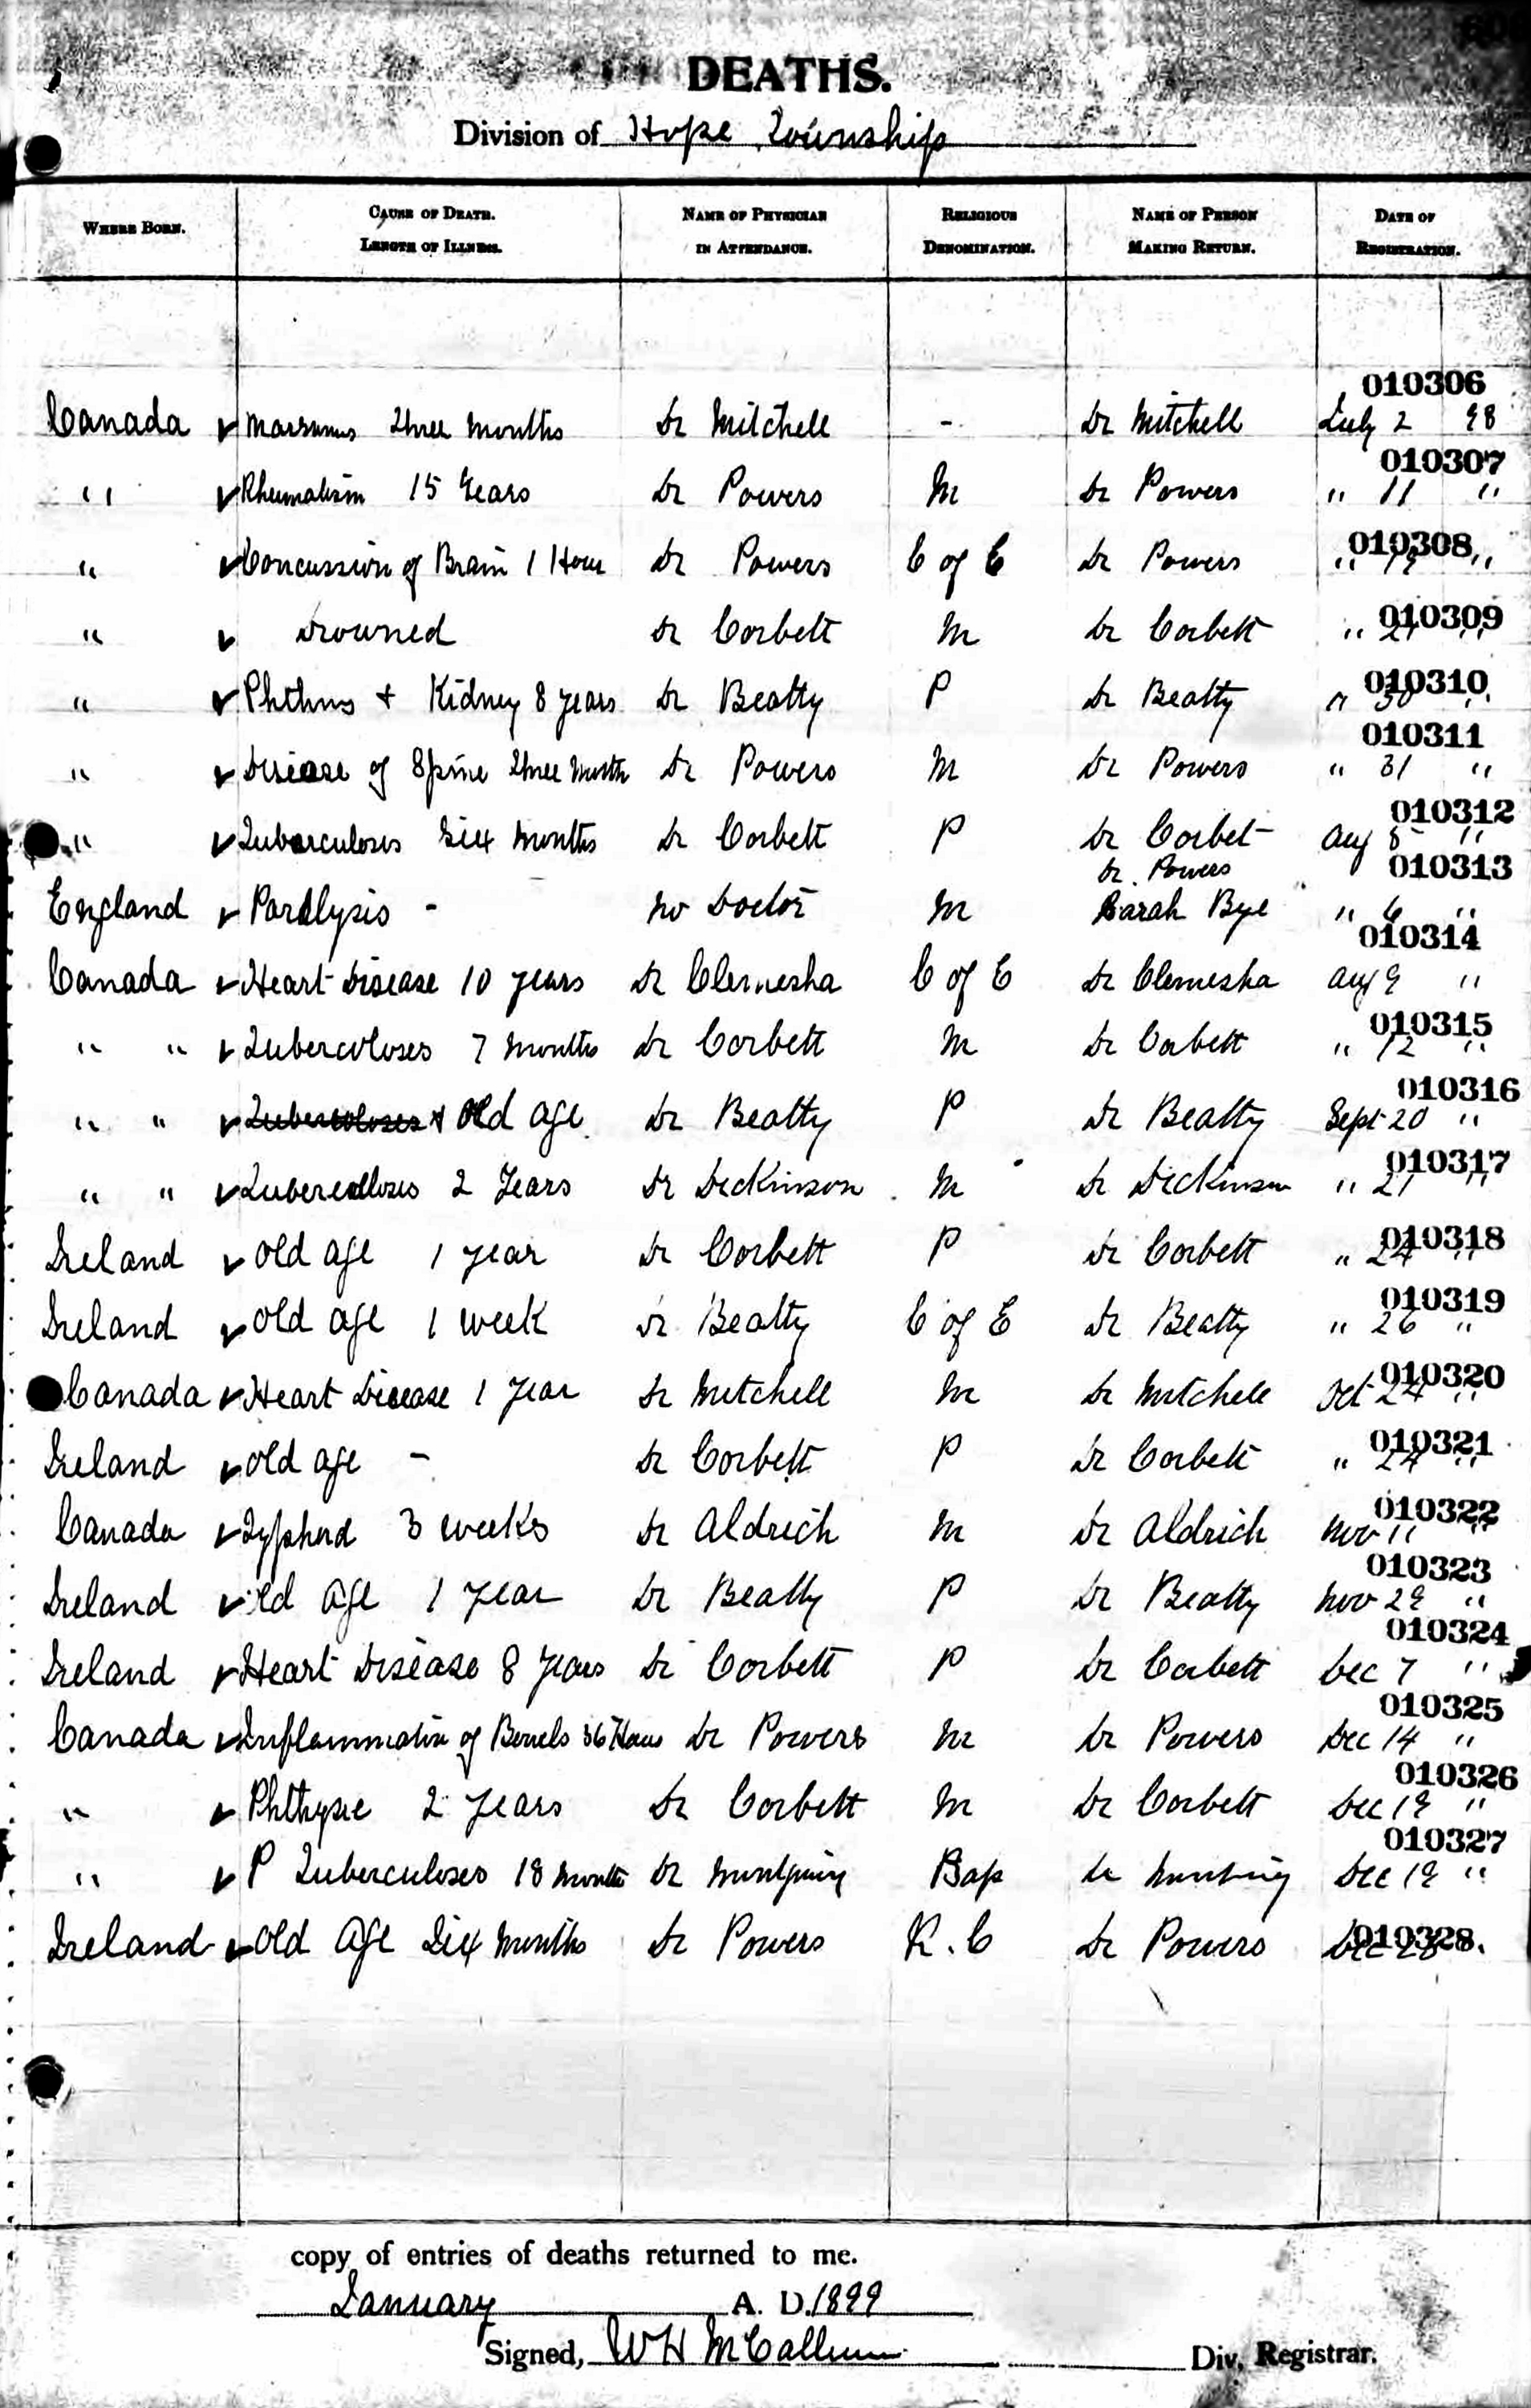 DEATHS.
Division of Hope Township
WHERE BORN. CAUSE OF DEATH. LENGTH OF ILLNESS. NAME OF PHYSICIAN IN ATTENDANCE. RELIGIOUS DENOMINATION. NAME OF PERSON MAKING RETURN. DATE OF REGISTRATION.
010306
Canada Marasmus Three Months Dr Mitchell - Dr Mitchell July 2 98
010307
" Rheumatism 15 Years Dr Powers M Dr Powers " 11 "
010308
" Concussion of Brain 1 Hour Dr Powers C of E Dr Powers " "
010309
" Drowned Dr Corbett M Dr Corbett " 21 "
010310
" & Kidney 8 years Dr Beatty P Dr Beatty " 30 "
010311
" Disease of Spine Three Month Dr Powers M Dr Powers " 31 "
010312
" Tuberculosis Six Months Dr Corbett P Dr Corbet Aug 5 "
Dr. Powers 010313
England Paralysis - No Doctor M Sarah Bye " 6 "
010314
Canada Heart Disease 10 years Dr Clemesha C of E Dr Clemesha Aug 9 "
010315
" " Tuberculoses 7 Months Dr Corbett M Dr Corbett " 12 "
010316
" " Tuberculoses & Old Age Dr Beatty P Dr Beatty Sept 20 "
010317
" " Tuberculosis 2 Years Dr Dickinson M Dr Dickinson " 21 "
010318
Ireland Old Age 1 year Dr Corbett P Dr Corbett " 24 "
010319
Ireland Old Age 1 week Dr Beatty C of E Dr Beatty " 26 "
010320
Canada Heart Disease 1 year Dr Mitchell M Dr Mitchell Oct 24 "
010321
Ireland Old Age - Dr Corbett P Dr Corbett " 24 "
010322
Canada Typhord 3 weeks Dr Aldrich M Dr Aldrich Nov 11 "
010323
Ireland Old Age 1 year Dr Beatty P Dr Beatty Nov 29 "
010324
Ireland Heart Disease 8 years Dr Corbett P Dr Corbett Dec 7 "
010325
Canada Inflammation of Bowels 36 Hours Dr Powers M Dr Powers Dec 14 "
010326
" Phthysie 2 years Dr Corbett M Dr Corbett Dec 19 "
010327
" P Tuberculoses 18 Months Dr Bap Dr Dec 19 "
Ireland Old Age Six Months Dr Powers R.C Dr Powers Dec 28 010328
copy of entries of deaths returned to me.
January A. D. 1899
Signed, W H McCallum Div. Registrar.